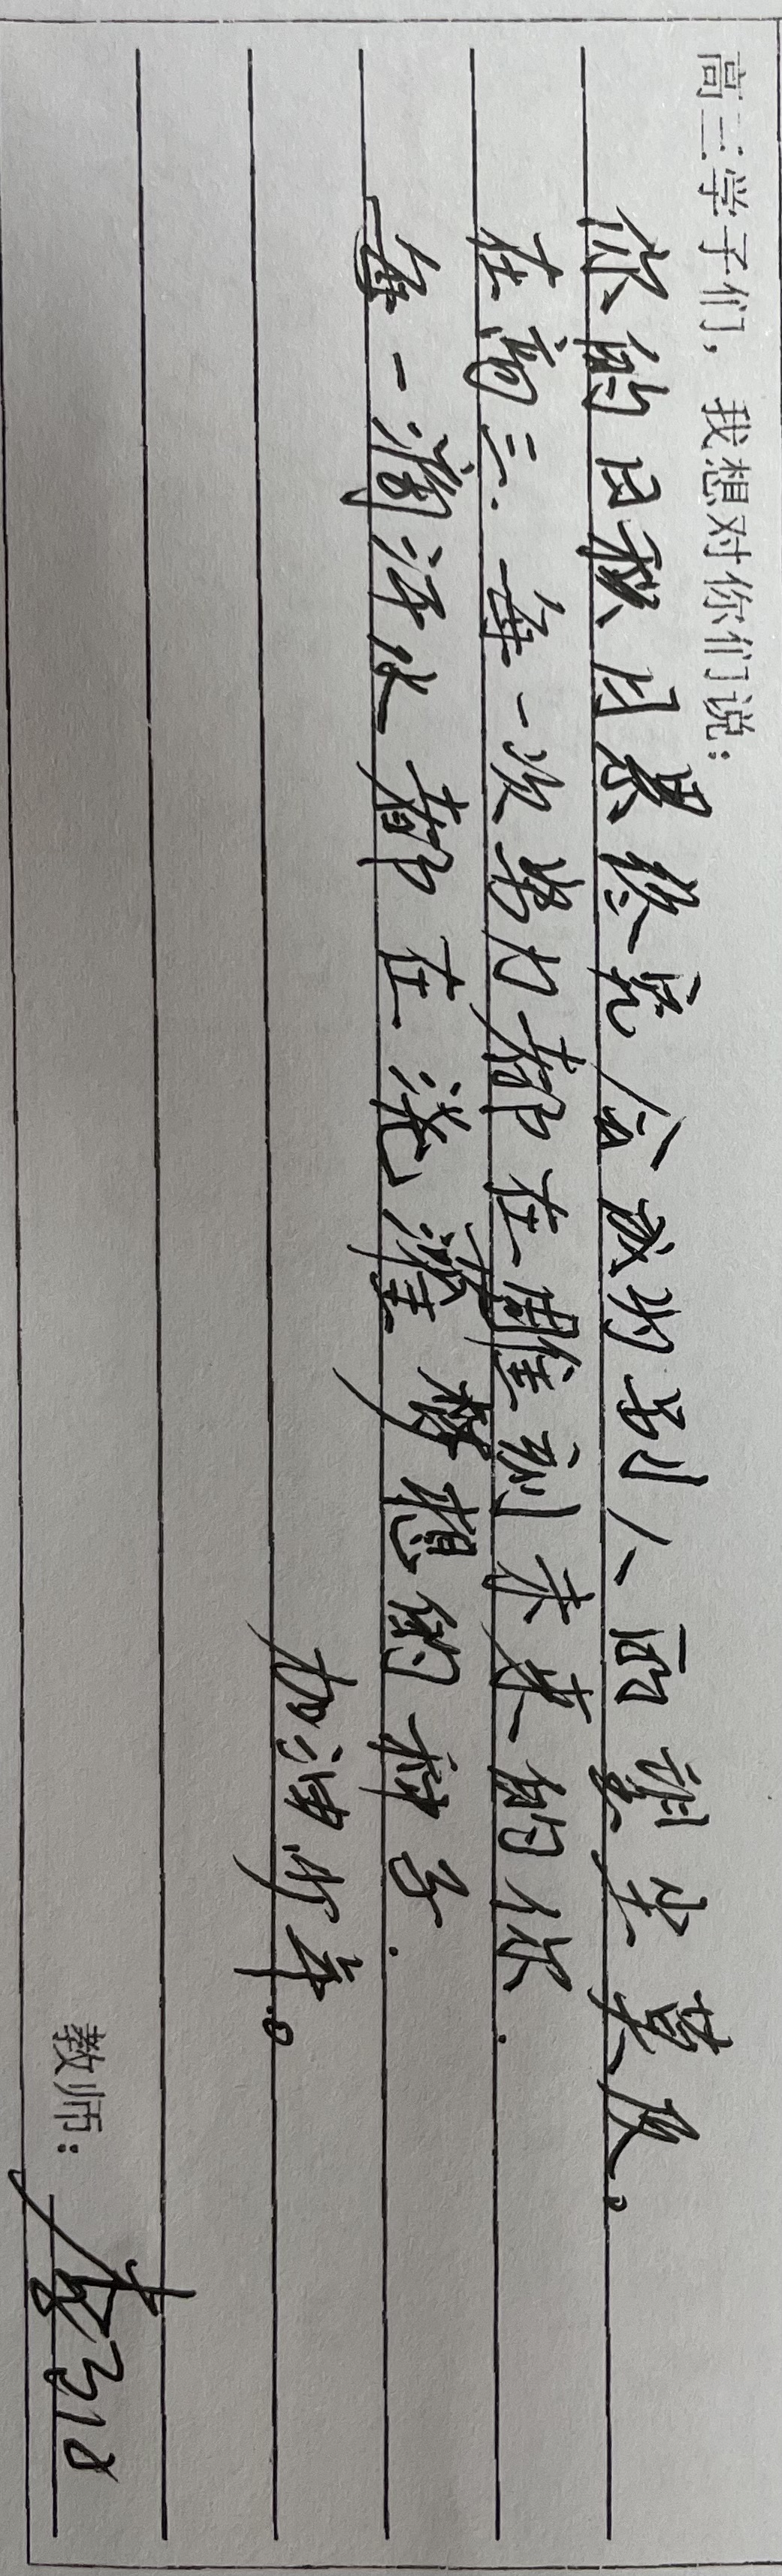 高三学子们，我想对你们说：
你的日积月累终究会成为别人的望尘莫及。
在高三.每一次努力都在雕刻未来的你.
每一滴汗水都在浇灌梦想的种子.
加油少年。
教师：李